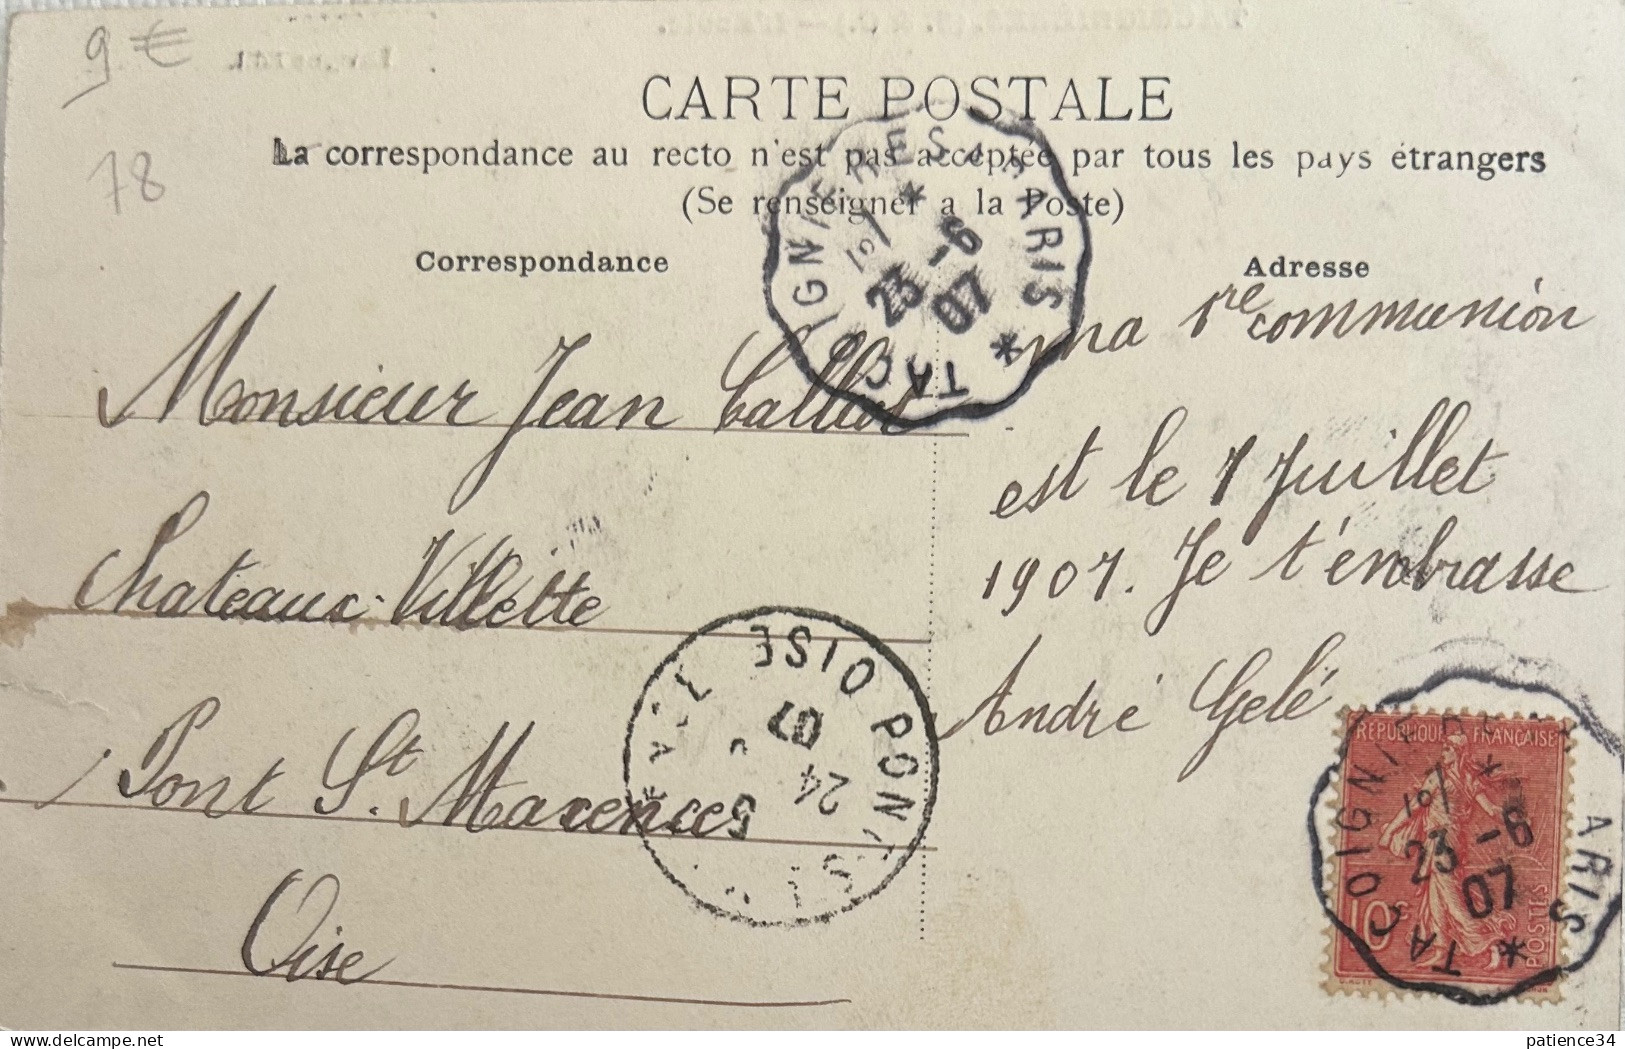 9 €
78
CARTE POSTALE
La correspondance au recto n'est pas acceptée par tous les pays étrangers
(Se renseigner a la Poste)
Correspondance
Adresse
Monsieur Jean Calliot
Chateaux-Villette
Pont St. Maxences
Oise
ma 1re communion
est le 7 Juillet
1907. Je t'embrasse
André Gelé
TACOIGNIÈRES PARIS
1o/
23 -6
07
OISE PONT-STE
24
07
5
RÉPUBLIQUE FRANÇAISE
10c
POSTES
TACOIGNIÈRES PARIS
1o/
23 -6
07
patience34